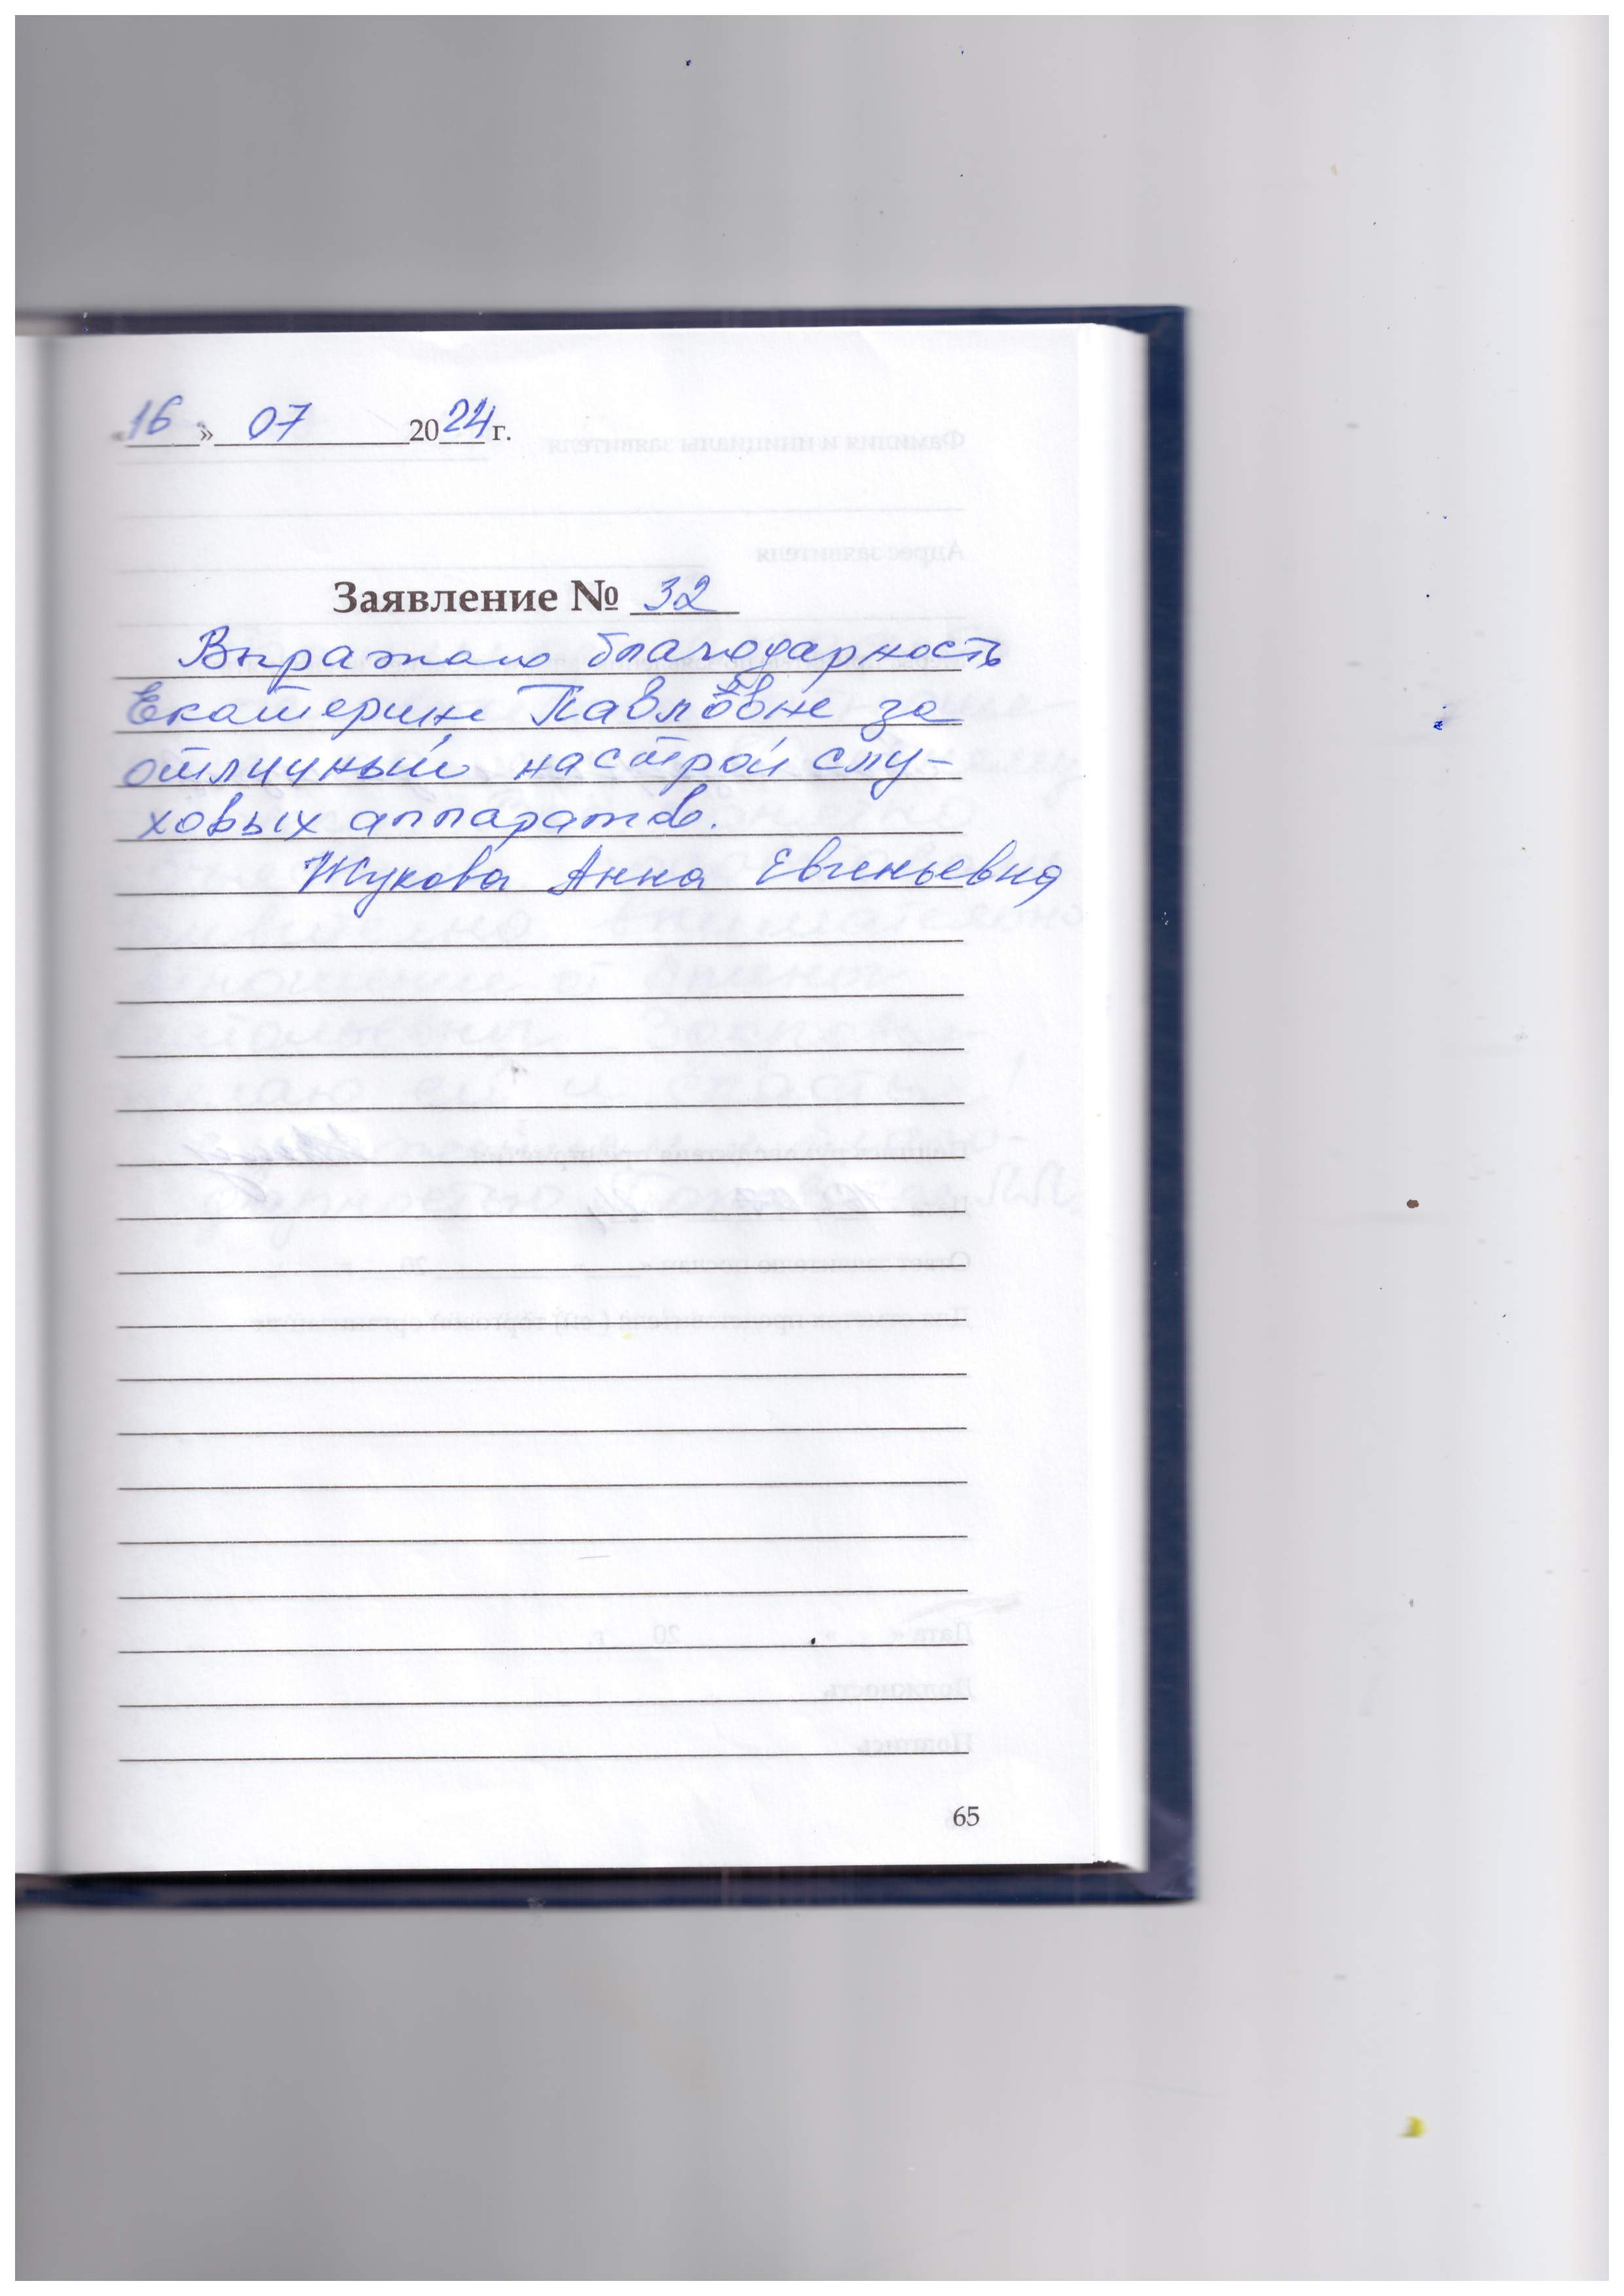 «16» 07 2024 г.
Заявление № 32
Выражаю благодарность
Екатерине Павловне за
отличный настрой слу-
ховых аппаратов.
Жукова Анна Евгеньевна
65